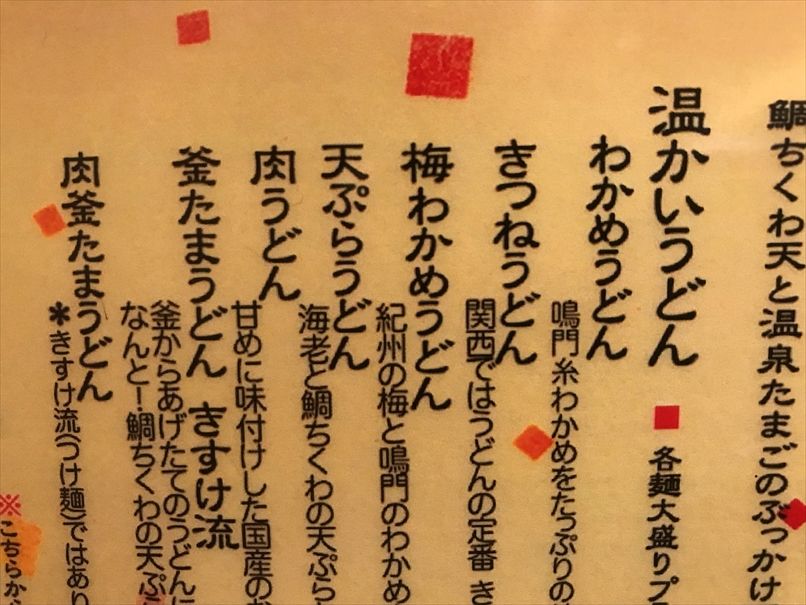 鯛ちくわ天と温泉たまごのぶっかけ
温かいうどん ■ 各麺大盛りプ
わかめうどん
鳴門糸わかめをたっぷりの
きつねうどん
関西ではうどんの定番 き
梅わかめうどん
紀州の梅と鳴門のわかめ
天ぷらうどん
海老と鯛ちくわの天ぷら
肉うどん
甘めに味付けした国産の
釜たまうどん きすけ流
釜からあげたてのうどんに
なんと！鯛ちくわの天ぷ
肉釜たまうどん
＊きすけ流(つけ麺)ではあり
※こちらか